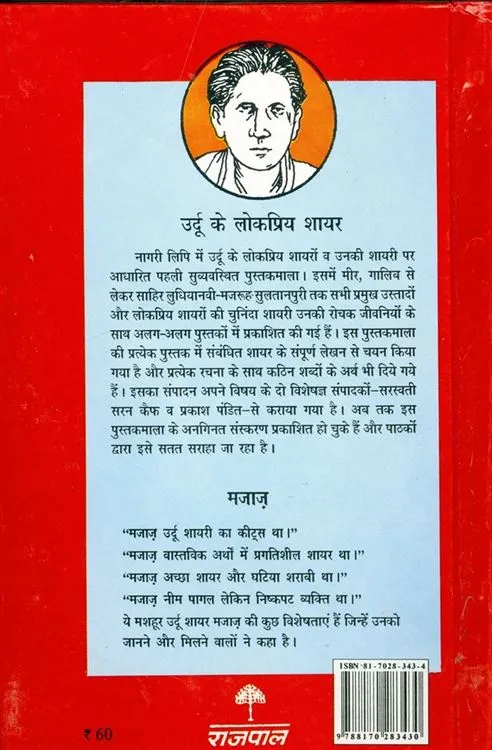 उर्दू के लोकप्रिय शायर
नागरी लिपि में उर्दू के लोकप्रिय शायरों व उनकी शायरी पर
आधारित पहली सुव्यवस्थित पुस्तकमाला। इसमें मीर, गालिब से
लेकर साहिर लुधियानवी-मजरूह-सुलतानपुरी तक सभी प्रमुख उस्तादों
और लोकप्रिय शायरों की चुनिंदा शायरी उनकी रोचक जीवनियों के
साथ अलग-अलग पुस्तकों में प्रकाशित की गई हैं। इस पुस्तकमाला
की प्रत्येक पुस्तक में संबंधित शायर के संपूर्ण लेखन से चयन किया
गया है और प्रत्येक रचना के साथ कठिन शब्दों के अर्थ भी दिये गये
हैं। इसका संपादन अपने विषय के दो विशेषज्ञ संपादकों-सरस्वती
सरन कैफ व प्रकाश पंडित-से कराया गया है। अब तक इस
पुस्तकमाला के अनगिनत संस्करण प्रकाशित हो चुके हैं और पाठकों
द्वारा इसे सतत सराहा जा रहा है।
मजाज़
“मजाज़ उर्दू शायरी का कीट्स था।”
“मजाज़ वास्तविक अर्थों में प्रगतिशील शायर था।”
“मजाज़ अच्छा शायर और घटिया शराबी था।”
“मजाज़ नीम पागल लेकिन निष्कपट व्यक्ति था।”
ये मशहूर उर्दू शायर मजाज़ की कुछ विशेषताएं हैं जिन्हें उनको
जानने और मिलने वालों ने कहा है।
ISBN-81-7028-343-4
9 788170 283430
₹ 60
राजपाल